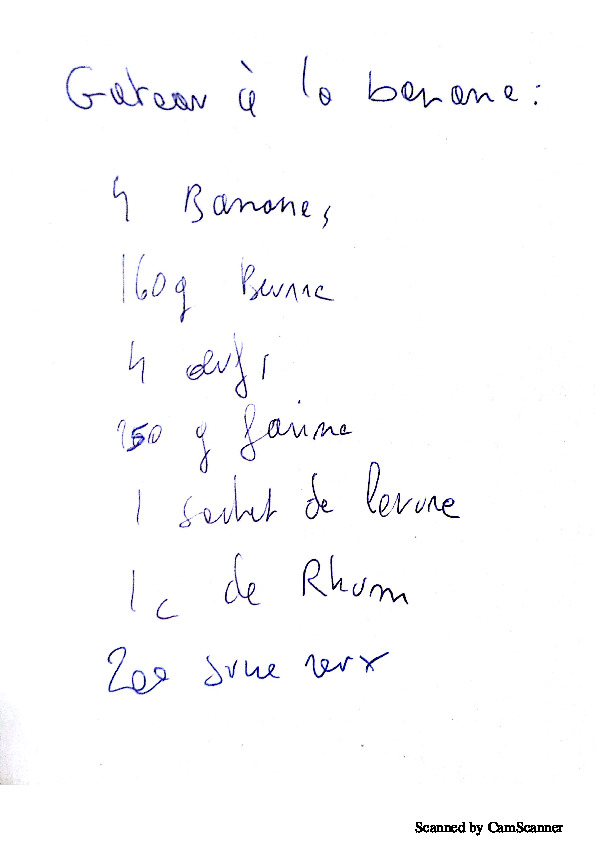 Gateau à la banane :
4 Bananes
160g Beurre
4 œufs
250 g farine
1 sachet de levure
1 c de Rhum
200 sucre roux
Scanned by CamScanner